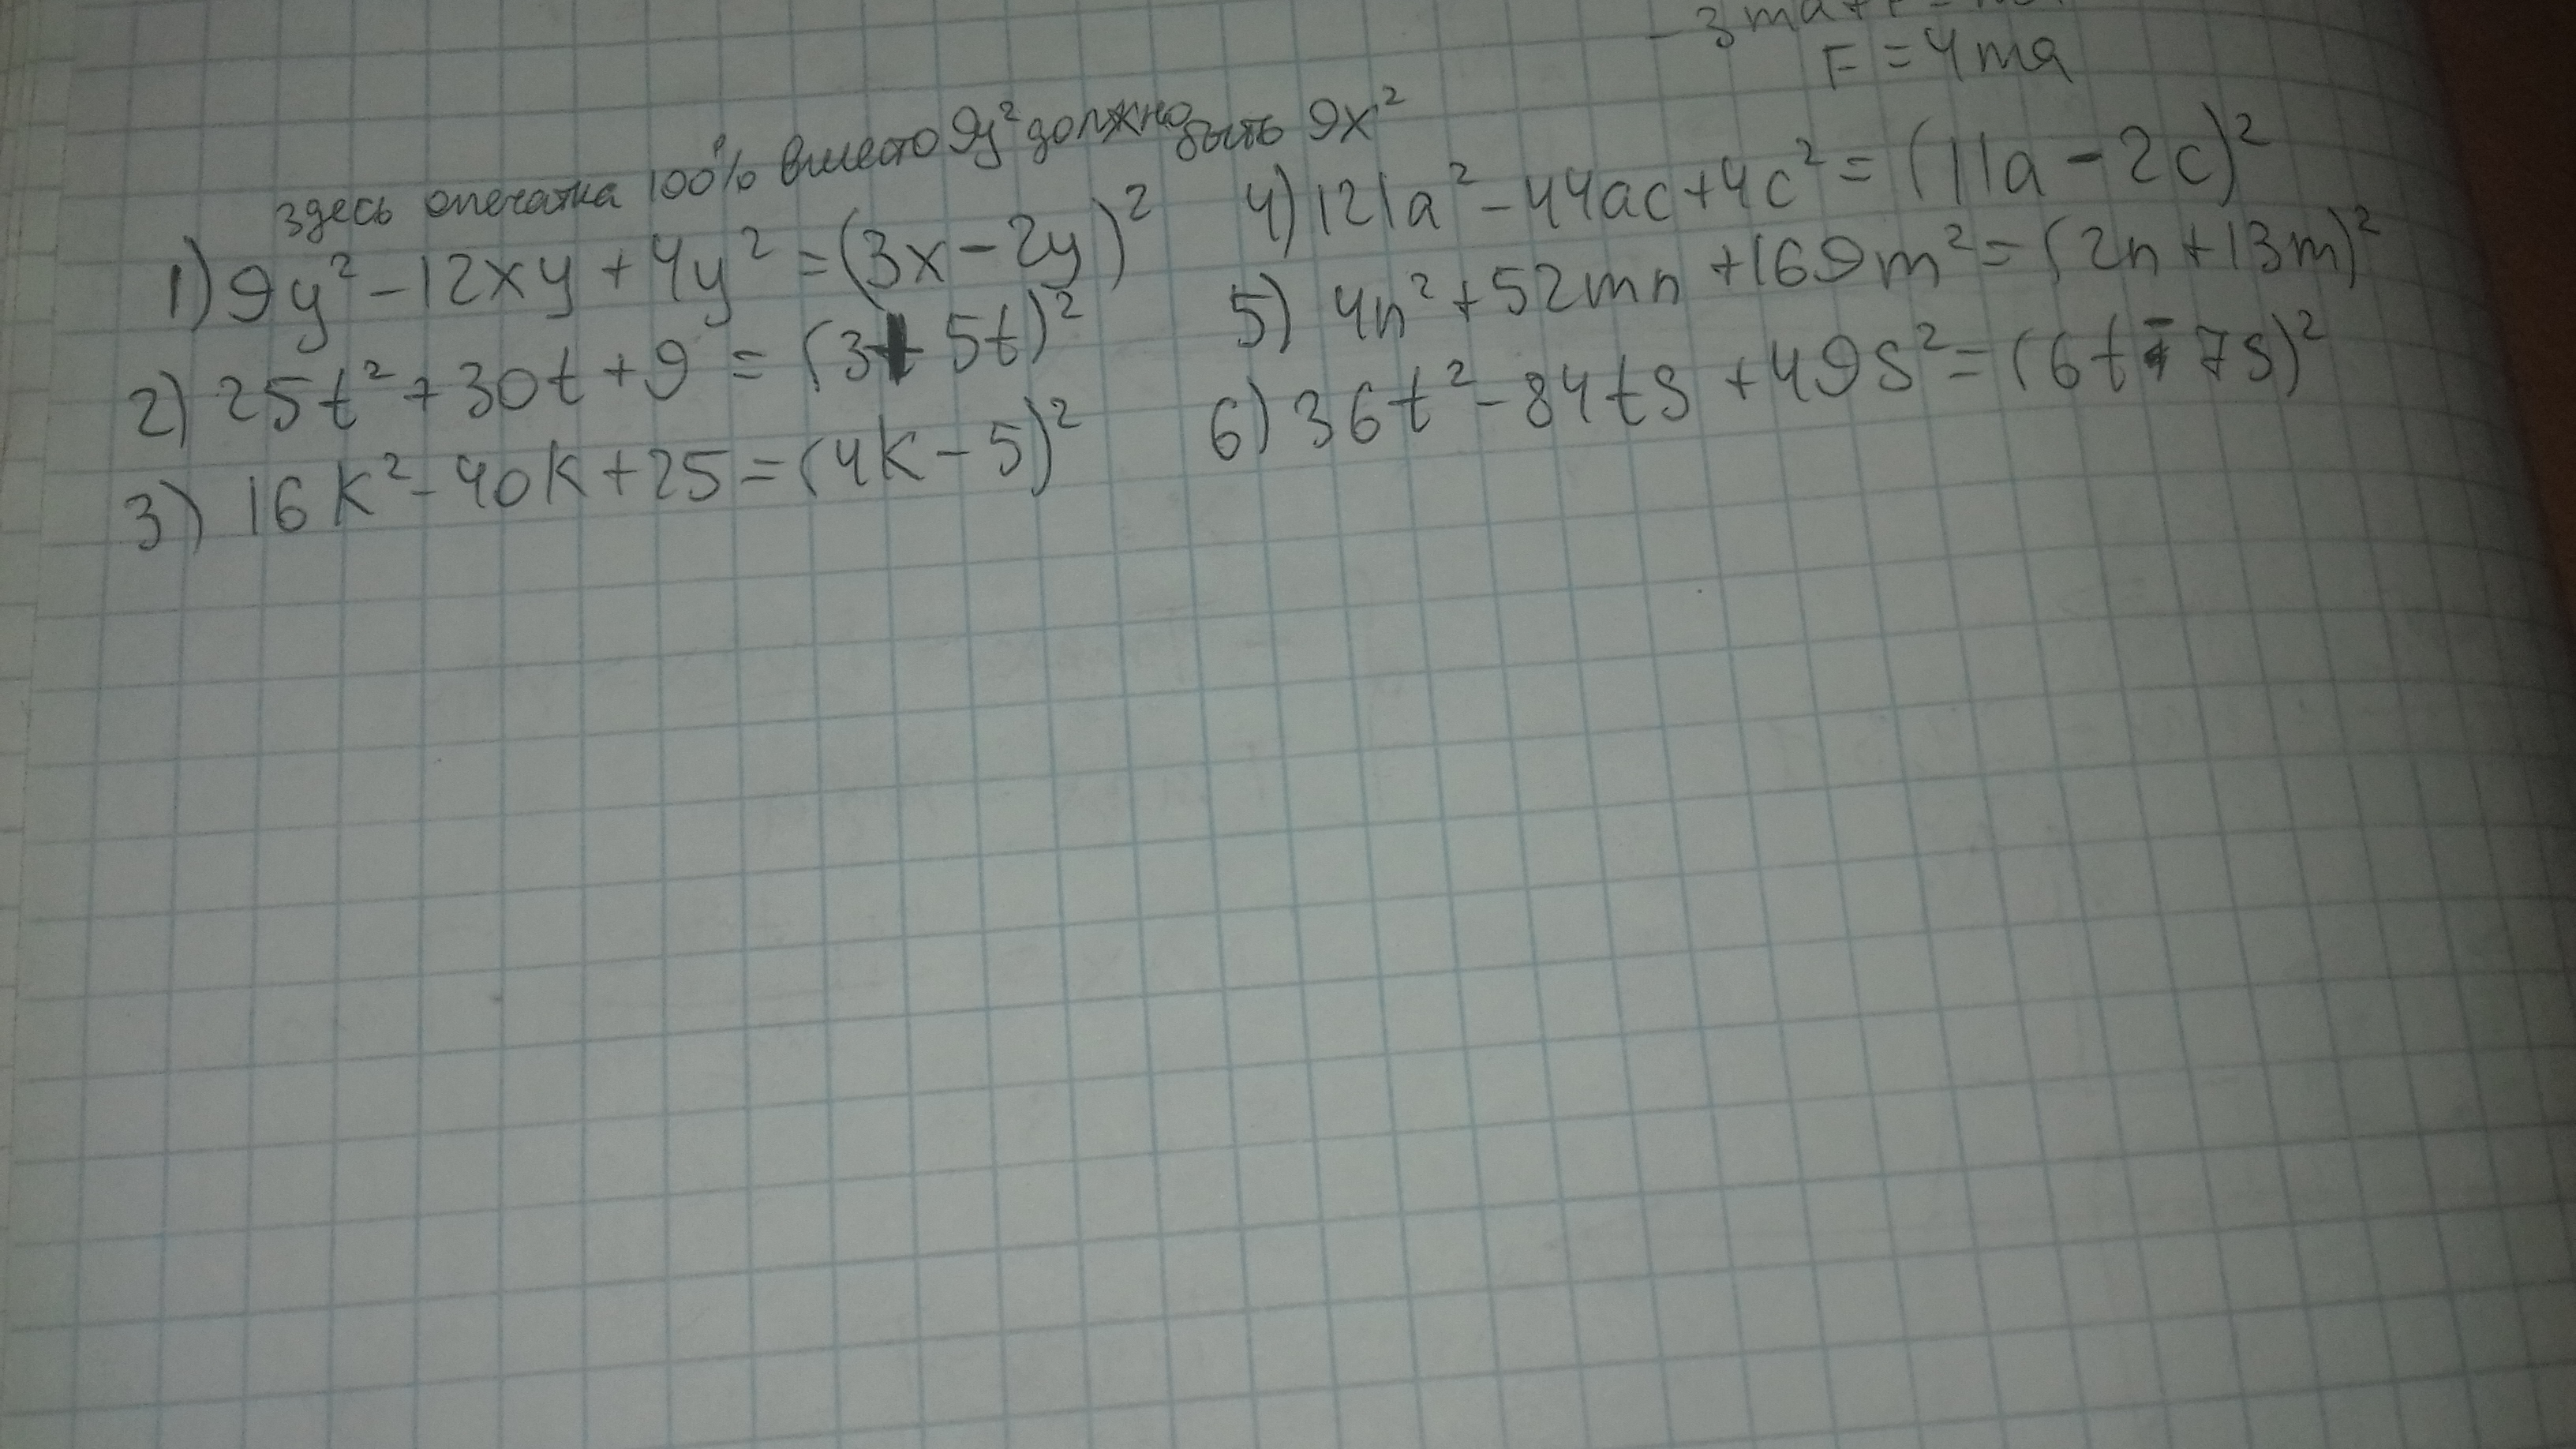 F = 4ma
здесь опечатка 100% вместо 9y² должно быть 9x²
1) 9y² - 12xy + 4y² = (3x - 2y)²
2) 25t² + 30t + 9 = (3 + 5t)²
3) 16k² - 40k + 25 = (4k - 5)²
4) 121a² - 44ac + 4c² = (11a - 2c)²
5) 4n² + 52mn + 169m² = (2n + 13m)²
6) 36t² - 84ts + 49s² = (6t - 7s)²